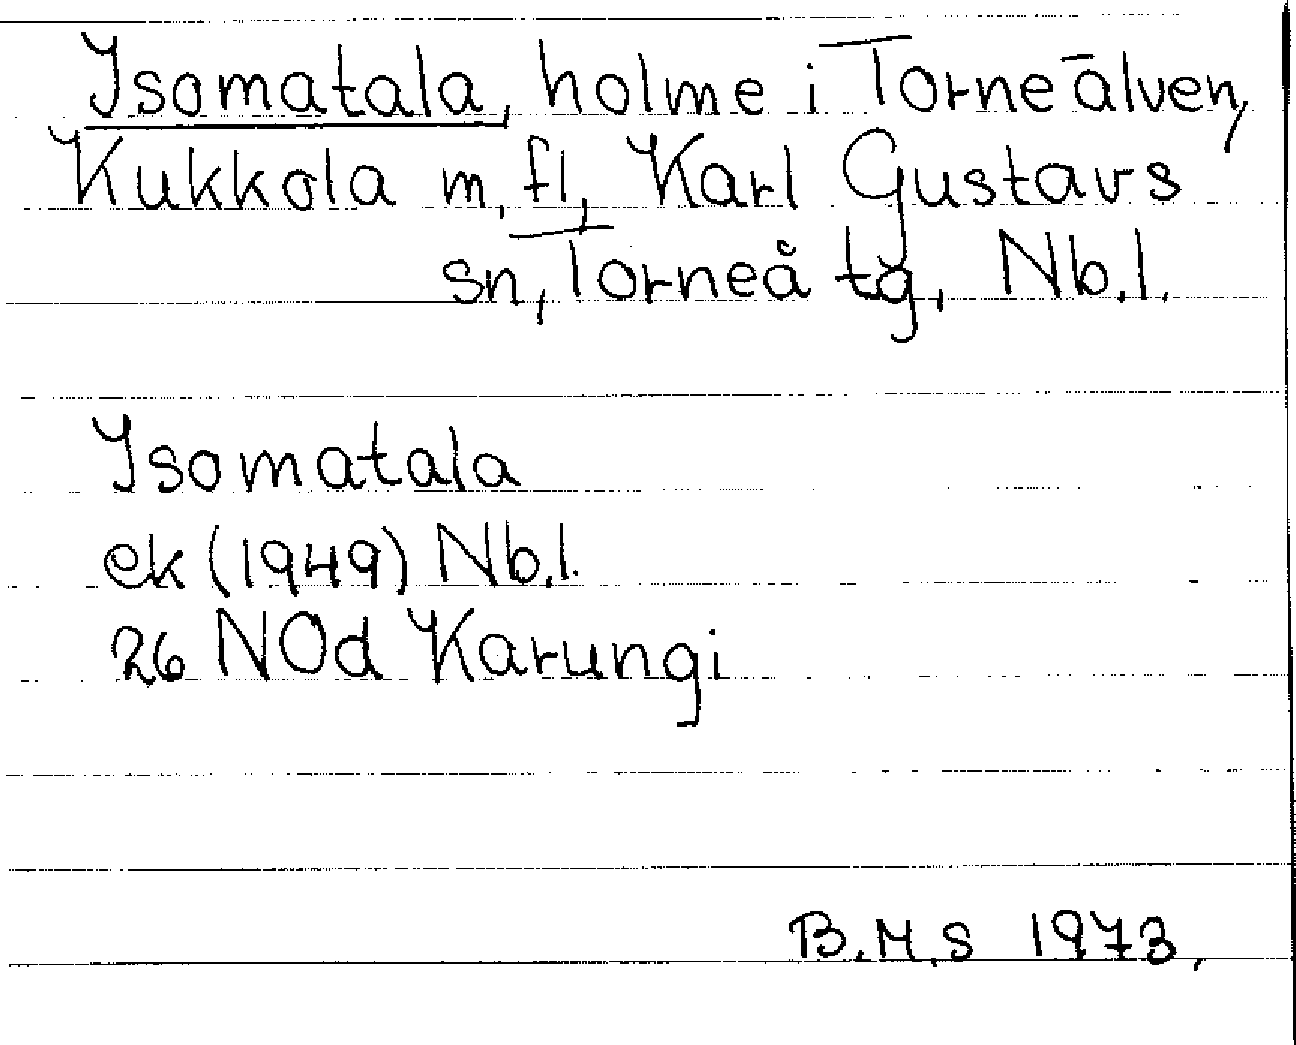 Isomatala, holme i Torneälven,
Kukkola m.fl., Karl Gustavs
sn, Torneå tg, Nb.l.
Isomatala
ek (1949) Nb.l.
26 NOd Karungi
B.M.S 1973.